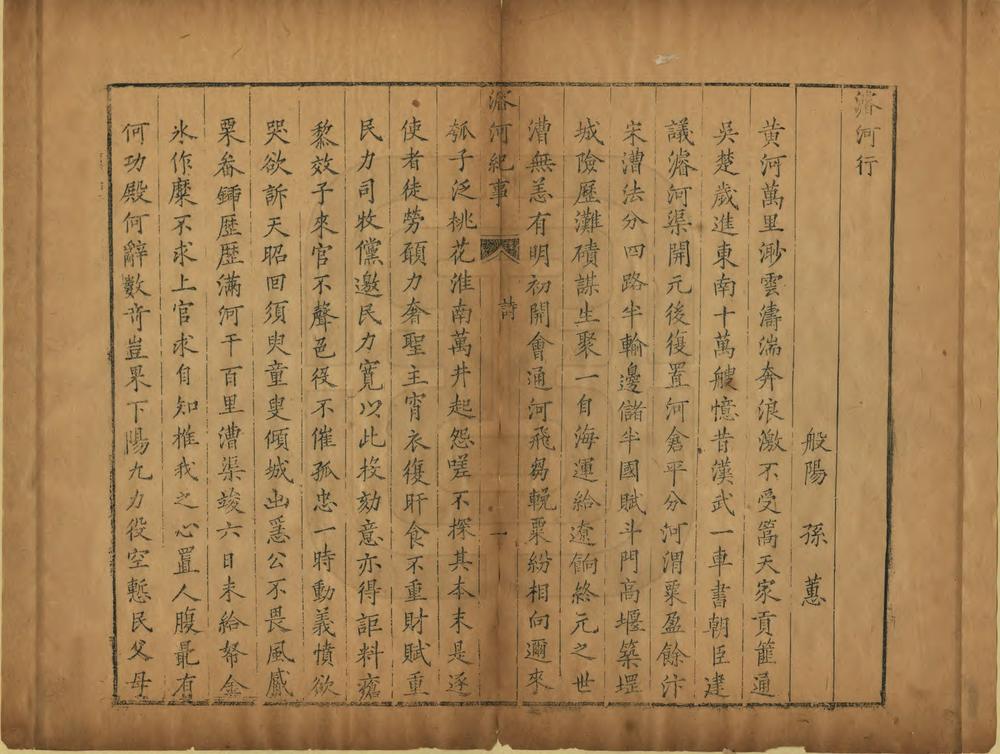 濬河行
般陽 孫蕙
黃河萬里渺雲濤湍奔浪激不受篙天家貢篚通
吳楚歲進東南十萬艘憶昔漢武一車書朝臣建
議濬河渠開元後復置河倉平分河渭粟盈餘汴
宋漕法分四路半輸邊儲半國賦斗門高堰築堽
城險歷灘磧謀生聚一自海運給遼餉終元之世
漕無恙有明初開會通河飛芻輓粟紛相向邇來
濬河紀事
詩
一
瓠子泛桃花淮南萬井起怨嗟不探其本末是逐
使者徒勞顓力奢聖主宵衣復旰食不重財賦重
民力司牧儻邀民力寬以此投劾意亦得詎料瘡
黎效子來官不聲色役不催孤忠一時動義憤欲
哭欲訴天昭回須臾童叟傾城出爲公不畏風威
栗畚鍤歷歷滿河干百里漕渠竣六日未給帑金
氷作糜不求上官求自知推我之心置人腹最有
何功殿何辭數奇豈果下陽九力役空慙民父母